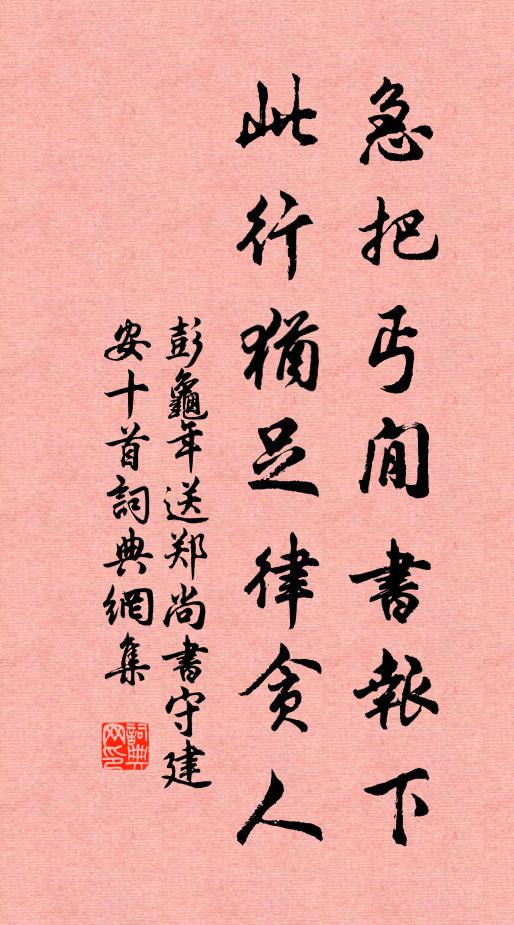 急把丐閒書報下
此行猶足律貪人
彭龜年送郑尚書守建
安十首詞典網集
詞典网印